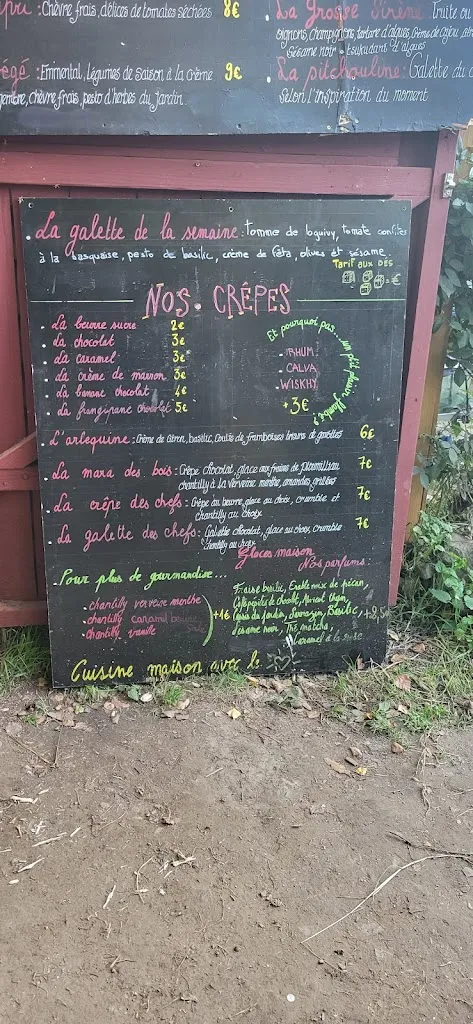 Chèvre frais, délices de tomates séchées 8€
égé : Emmental, Légumes de saison à la crème 9€
gembre, chèvre frais, pesto d'herbes du jardin
La Grosse Sirène : Truite ou
oignons, champignons, tartare d'algues, crème de cajou,
Sésame noir + tsukudani d'algues
La pitchouline : Galette du
Selon l'inspiration du moment
La galette de la semaine : tomme de loguivy, tomate confites
à la basquaise, pesto de basilic, crème de féta, olives et sésame.
Tarif aux DÉS
= €
NOS CRÊPES
. La beurre sucre 2€
. La chocolat 3€
. La caramel 3€
. La crème de marron 3€
. La banane chocolat 4€
. La frangipane chocolat 5€
Et pourquoi pas... un p'tit flambé ?
. RHUM
. CALVA
. WISKHY
+3€
L'arlequine : Crème de citron, basilic, coulis de framboises 6€
. La mara des bois : Crêpe chocolat, glace aux fraises de 7€
chantilly à la verveine menthe, amandes grillées
. La crêpe des chefs : Crêpe au beurre, glace au choix, crumble et 7€
chantilly au choix
. La galette des chefs : Galette chocolat, glace au choix, crumble 7€
chantilly au choix
Glaces maison
Nos parfums :
Pour plus de gourmandise...
. chantilly verveine menthe
. chantilly caramel beurre
. chantilly vanille
+1€
Fraise basilic, Erable noix de pécan,
Café pépites de chocolat, Abricot thym,
Cassis du jardin, Sarrasin, Basilic,
Sésame noir, Thé matcha,
Caramel
Cuisine maison avec le